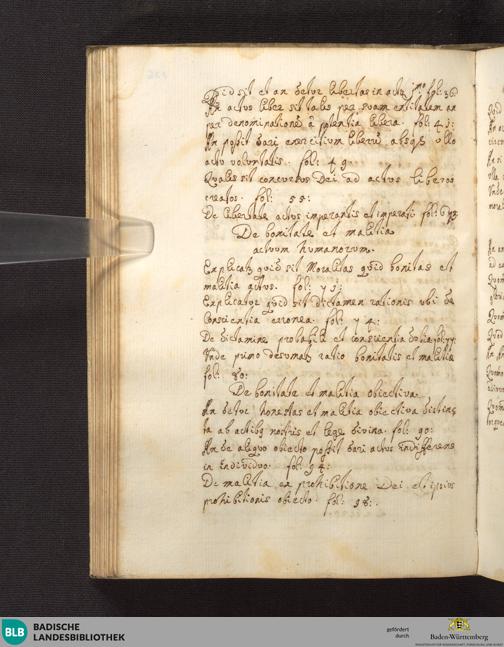 Quid sit et an detur libertas in actu imo fol: 36
An actus liber sit talis per suam entitatem an
per denominatione à potentia libera. fol: 43:
An possit dari exercitium liberū absqȝ ullo
actu voluntatis. fol: 49
Qualis sit concursus Dei ad actus liberos
creatos. fol: 55:
De libertate actus imperantis et imperati fol: 67
De bonitate et malitia
actuum humanorum.
Explicatȝ quid sit Moralitas quid bonitas et
malitia actus. fol: 73:
Explicatur quid sit dictamen rationis ubi de
Conscientia erronea. fol: 74:
De dictamine probabili et conscientia dubia fol: 77:
Unde primo desumatȝ ratio bonitatis et malitiæ
fol: 80:
De bonitate et malitia obiectiva.
An detur honestas et malitia obiectiva distinc
ta ab actibȝ nostris et lege divina. fol: 90:
An de aliquo obiecto possit dari actus indifferens
in individuo. fol: 94:
De malitia ex prohibitione Dei et ipsius
prohibitionis obiecto. fol: 98:
BLB BADISCHE
LANDESBIBLIOTHEK
gefördert
durch
Baden-Württemberg